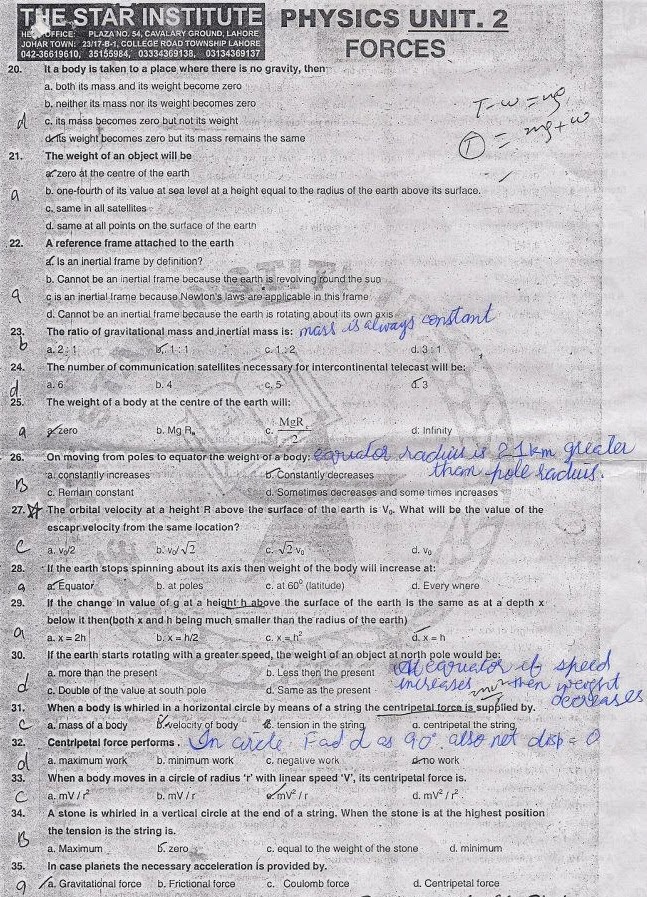 THE STAR INSTITUTE
HEAD OFFICE: PLAZA NO. 54, CAVALARY GROUND, LAHORE
JOHAR TOWN: 23/17-B-1, COLLEGE ROAD TOWNSHIP LAHORE
042-36619610, 35155984, 03334369138, 03134369137
PHYSICS UNIT. 2
FORCES
T - w = mg
T = mg + w
20. It a body is taken to a place where there is no gravity, then
a. both its mass and its weight become zero
b. neither its mass nor its weight becomes zero
d c. its mass becomes zero but not its weight
d. Its weight becomes zero but its mass remains the same
21. The weight of an object will be
a. zero at the centre of the earth
a b. one-fourth of its value at sea level at a height equal to the radius of the earth above its surface.
c. same in all satellites
d. same at all points on the surface of the earth
22. A reference frame attached to the earth
a. Is an inertial frame by definition?
b. Cannot be an inertial frame because the earth is revolving round the sun
a c is an inertial frame because Newton's laws are applicable in this frame
d. Cannot be an inertial frame because the earth is rotating about its own axis
23. The ratio of gravitational mass and inertial mass is: mass is always constant
b a. 2 : 1 b. 1 : 1 c. 1 : 2 d. 3 : 1
24. The number of communication satellites necessary for intercontinental telecast will be:
d a. 6 b. 4 c. 5 d. 3
25. The weight of a body at the centre of the earth will:
a a. zero b. Mg R c. MgR/2 d. Infinity
26. On moving from poles to equator the weight of a body: equator radius is 21km greater
than pole radius.
B a. constantly increases b. Constantly decreases
c. Remain constant d. Sometimes decreases and some times increases
27. The orbital velocity at a height R above the surface of the earth is V₀. What will be the value of the
escapr velocity from the same location?
c a. v₀/2 b. v₀/√2 c. √2 v₀ d. v₀
28. If the earth stops spinning about its axis then weight of the body will increase at:
a a. Equator b. at poles c. at 60° (latitude) d. Every where
29. If the change in value of g at a height h above the surface of the earth is the same as at a depth x
below it then(both x and h being much smaller than the radius of the earth)
a a. x = 2h b. x = h/2 c. x = h² d. x = h
30. If the earth starts rotating with a greater speed, the weight of an object at north pole would be:
a. more than the present b. Less then the present At equator if speed
d c. Double of the value at south pole d. Same as the present increases then weight
decreases
31. When a body is whirled in a horizontal circle by means of a string the centripetal force is supplied by.
c a. mass of a body b. velocity of body c. tension in the string d. centripetal the string
32. Centripetal force performs. In circle F ad d as 90°. also net disp = 0
d a. maximum work b. minimum work c. negative work d. no work
33. When a body moves in a circle of radius 'r' with linear speed 'V', its centripetal force is.
c a. mV / r² b. mV / r c. mV² / r d. mV² / r²
34. A stone is whirled in a vertical circle at the end of a string. When the stone is at the highest position
the tension is the string is.
B a. Maximum b. zero c. equal to the weight of the stone d. minimum
35. In case planets the necessary acceleration is provided by.
a a. Gravitational force b. Frictional force c. Coulomb force d. Centripetal force